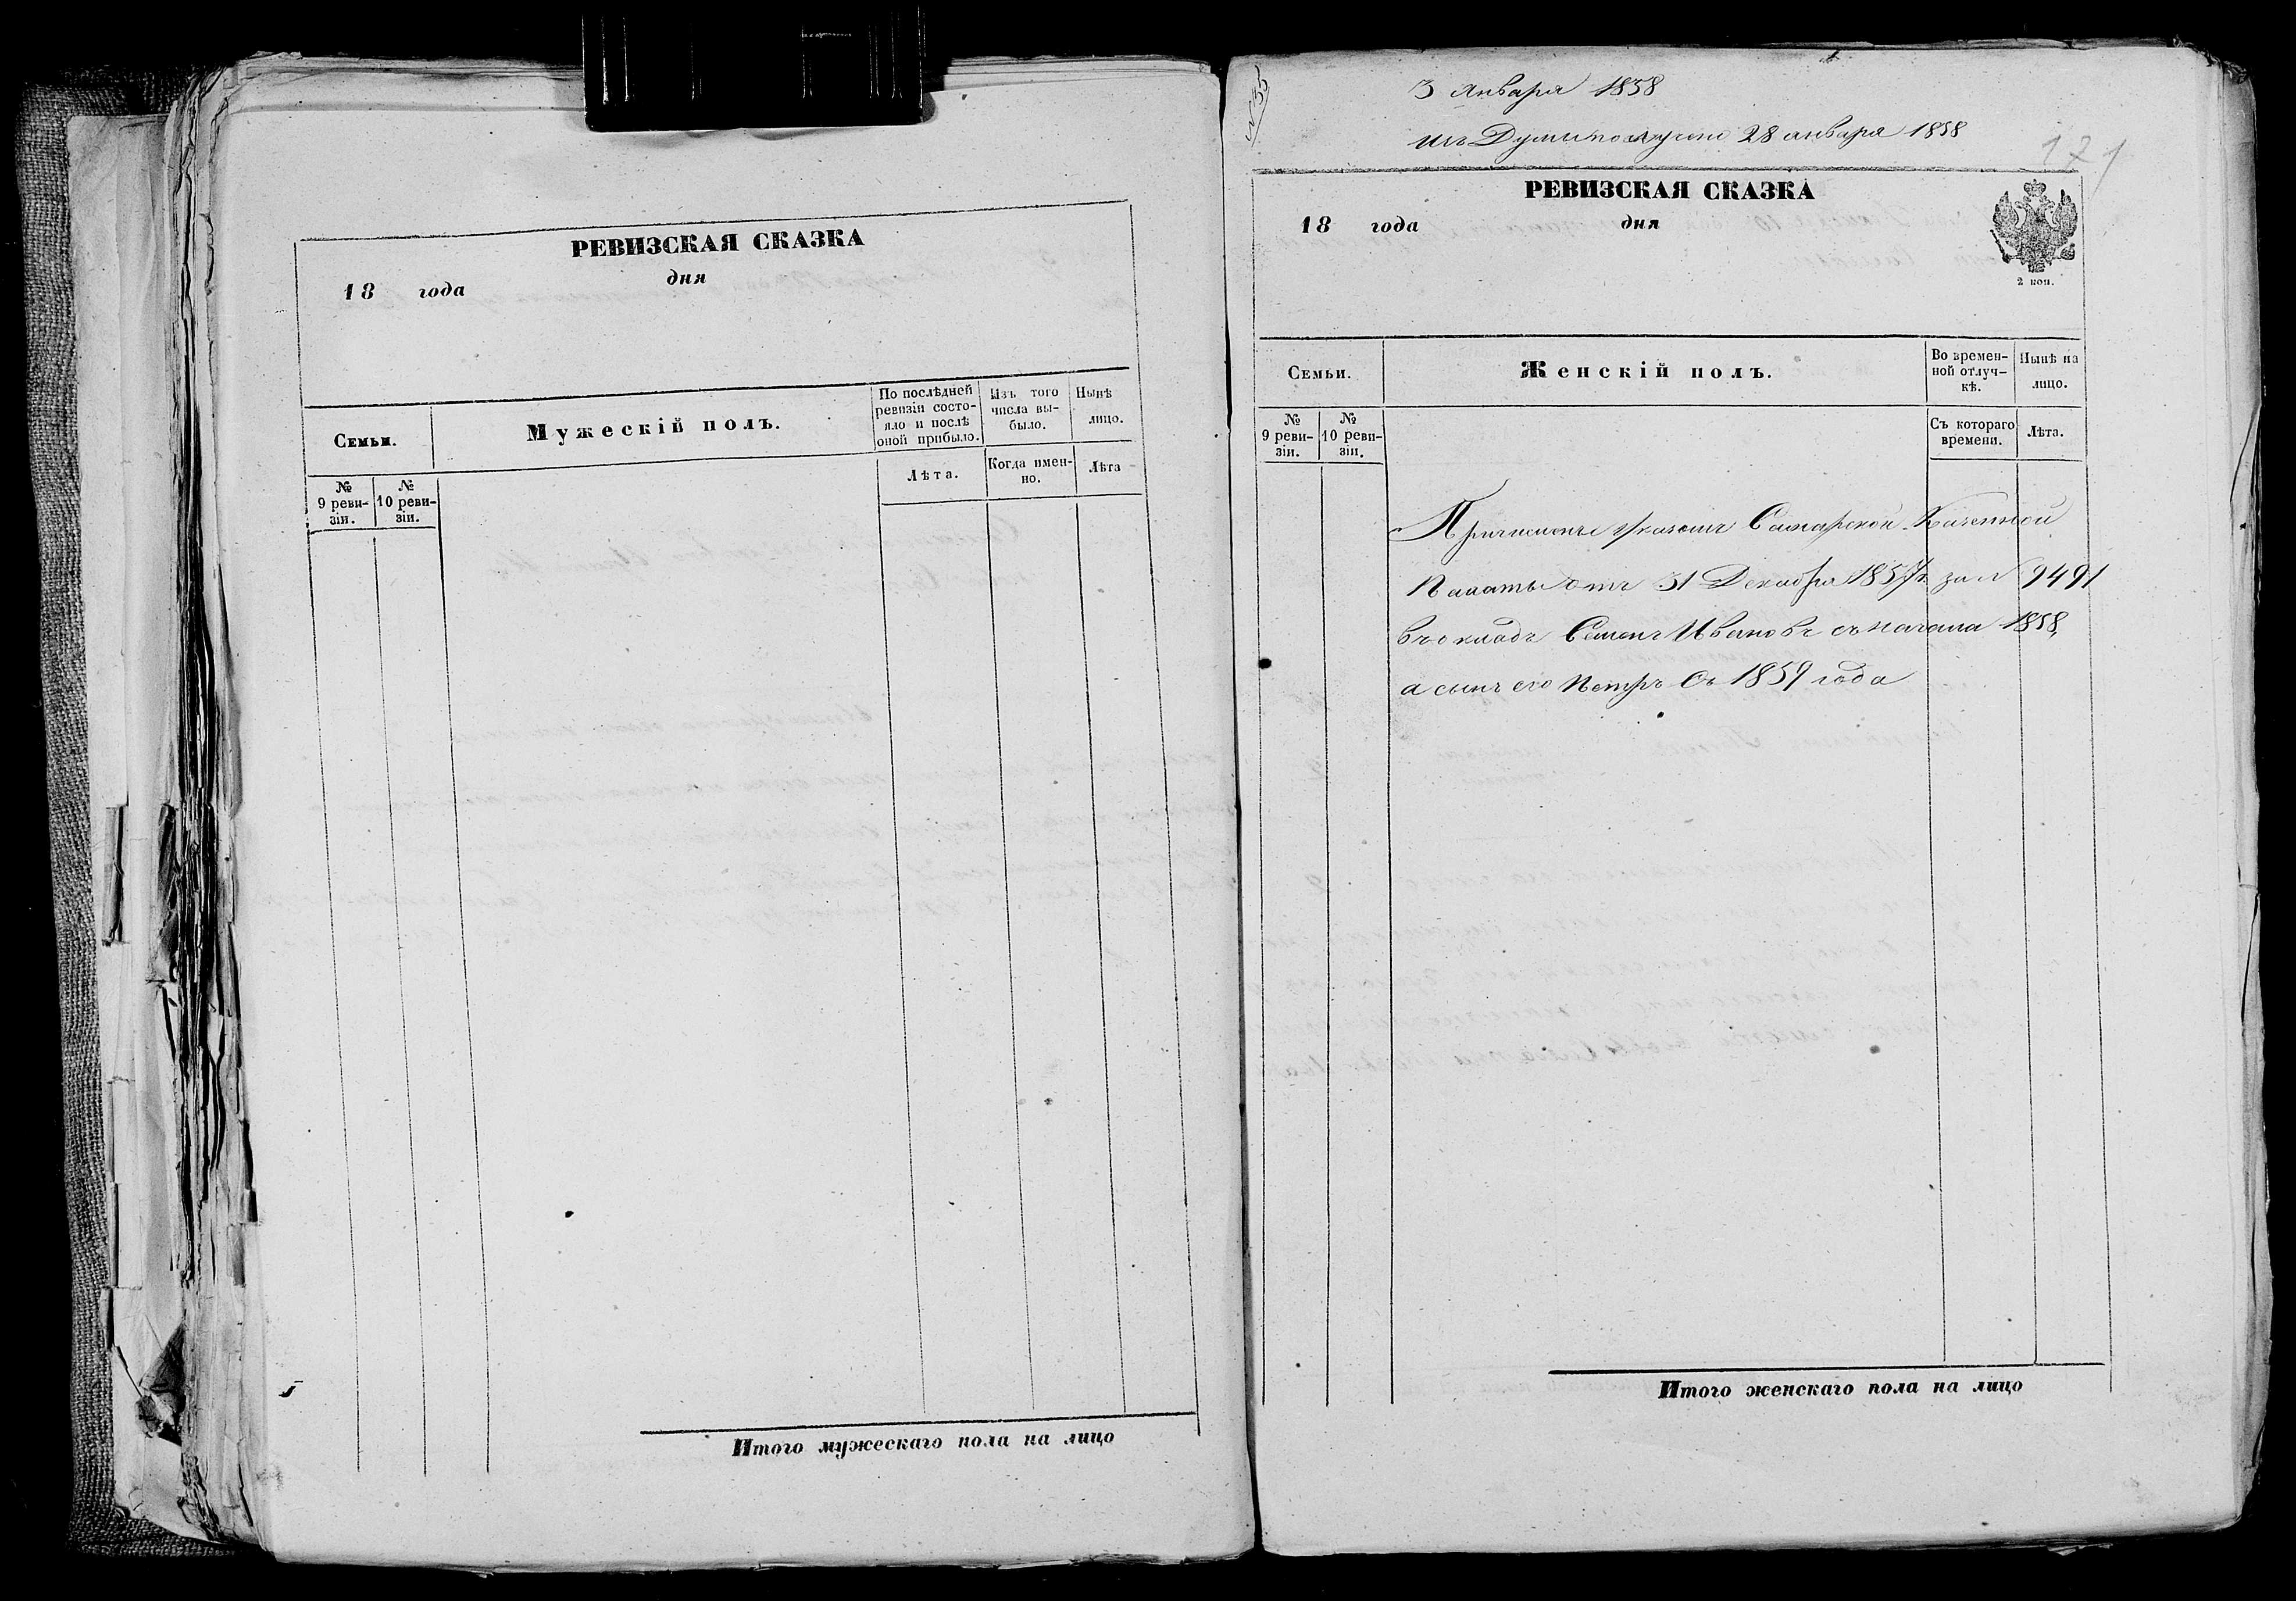 РЕВИЗСКАЯ СКАЗКА
18 года дня
Семьи.
Мужескій полъ.
По послѣдней ревизіи состо-
яло и послѣ оной прибыло.
Изъ того числа вы-
было.
Нынѣ лицо.
№ 9 реви-
зіи.
№ 10 реви-
зіи.
Лѣта.
Когда имен-
но.
Лѣта
Итого мужескаго пола на лицо
№ 35
3 Января 1858
изъ Думы получено 28 января 1858
171
РЕВИЗСКАЯ СКАЗКА
18 года дня
2 коп.
Семьи.
Женскій полъ.
Во времен-
ной отлуч-
кѣ.
Нынѣ на лицо.
№ 9 реви-
зіи.
№ 10 реви-
зіи.
Съ котораго времени.
Лѣта.
Причислены указомъ Самарской Казенной
Палаты отъ 31 Декабря 1857 г. за № 9491
въ окладъ Семенъ Ивановъ съ начала 1858,
а сынъ его Петръ съ 1859 года
Итого женскаго пола на лицо